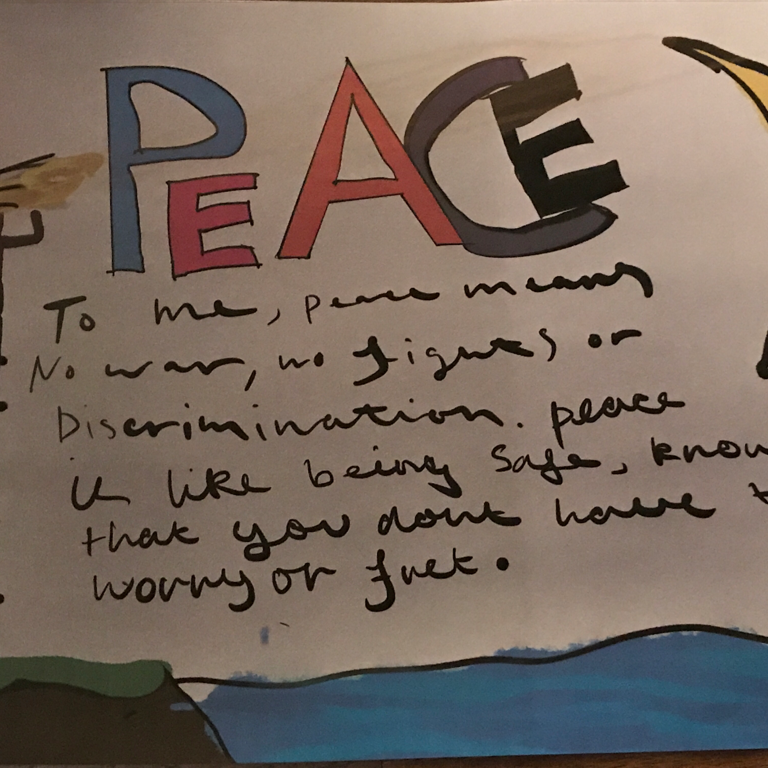 PEACE
To me, peace means
No war, no fights or
Discrimination. peace
is like being safe, know
that you dont have t
worry or fret.